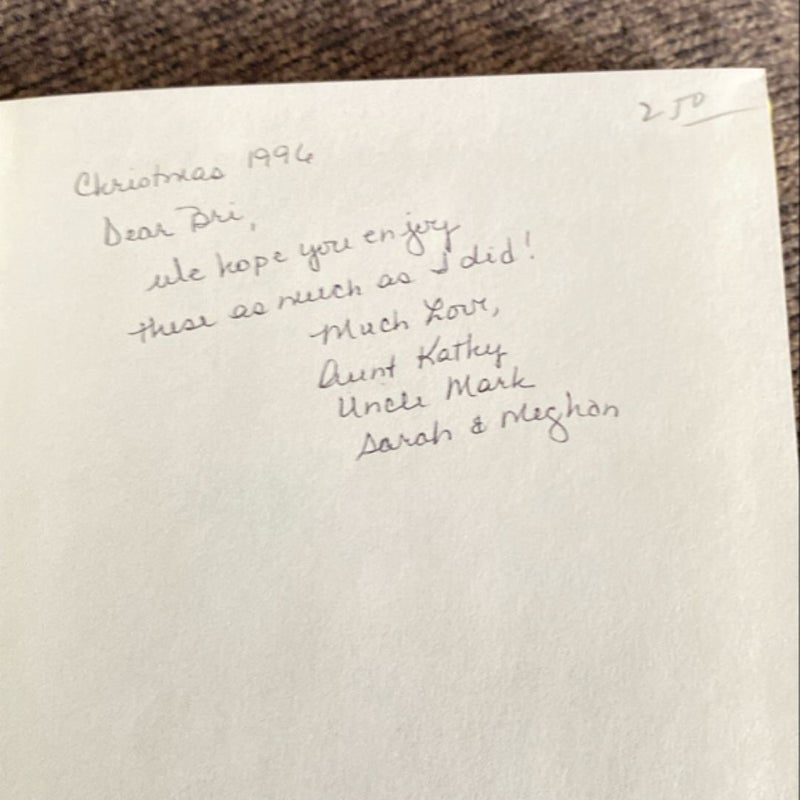 2 50
Christmas 1996
Dear Bri,
We hope you enjoy
these as much as I did!
Much Love,
Aunt Kathy
Uncle Mark
Sarah & Meghan